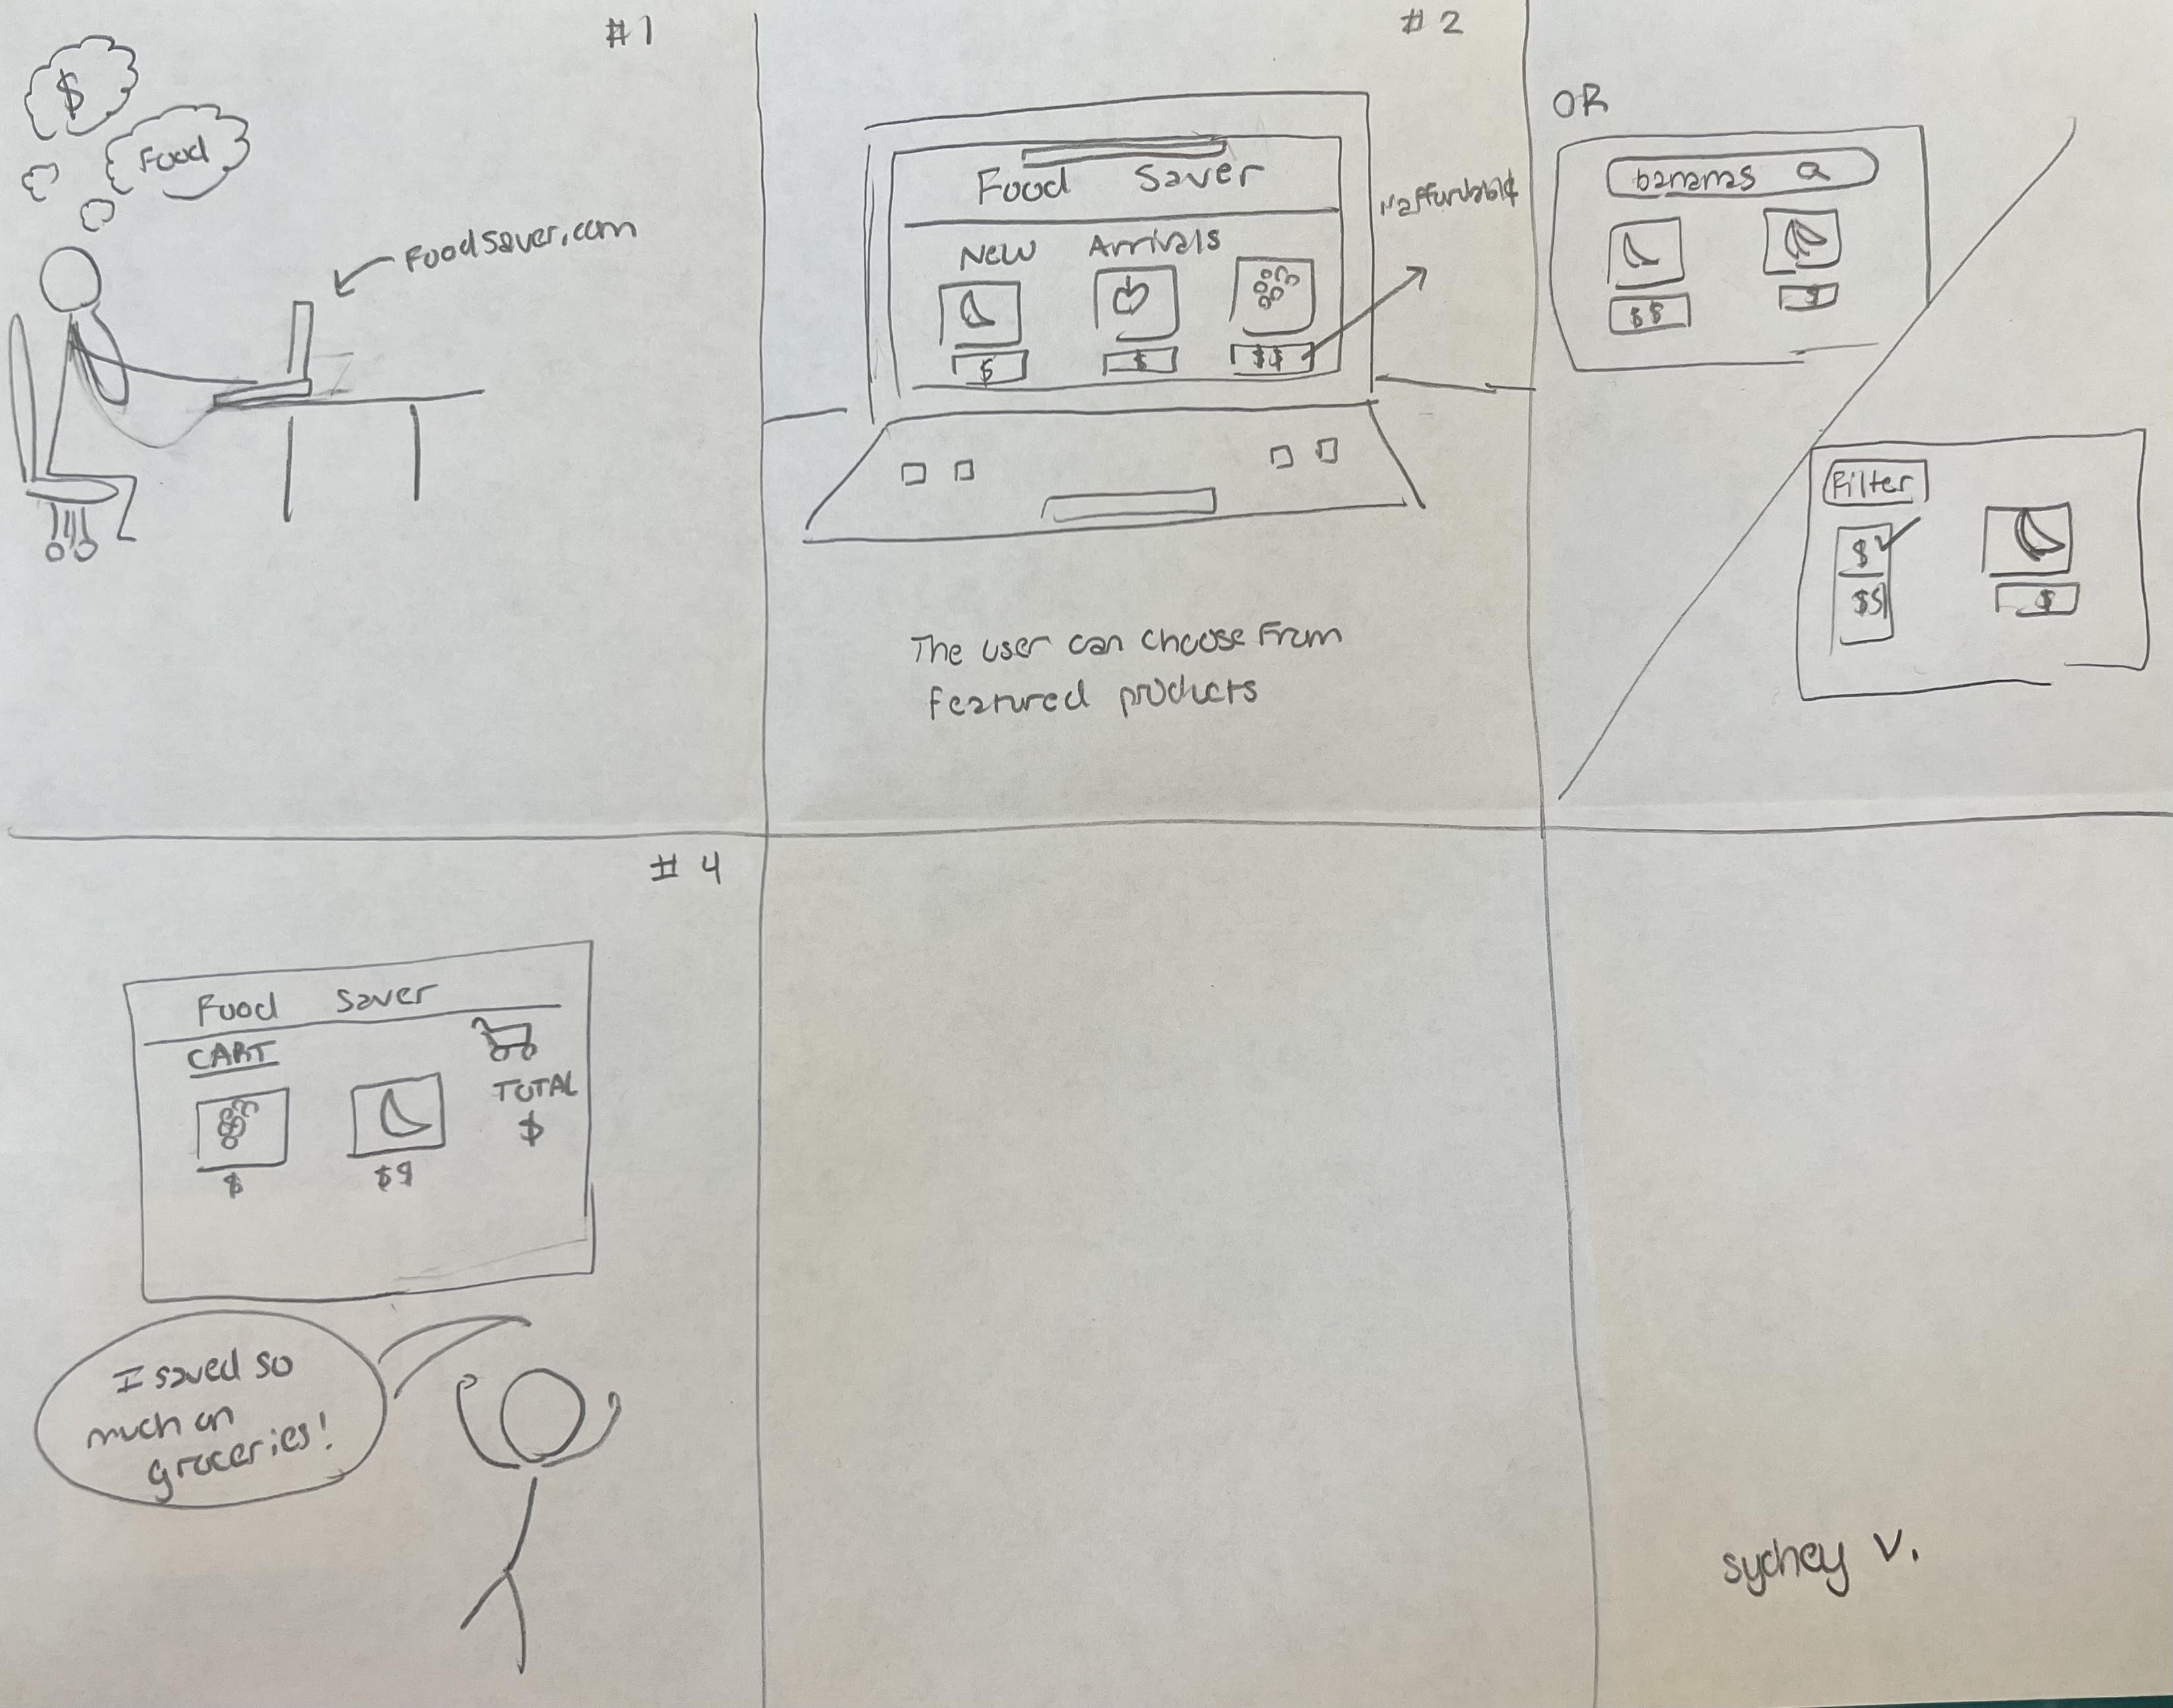 #1
$
Food
Foodsaver.com
#2
Food Saver
New Arrivals
$
$
$$
The user can choose from
featured products
OR
bananas
$$
$
Filter
$
$$
$
#4
Food Saver
CART
TOTAL
$
$
$$
I saved so
much on
groceries!
V.